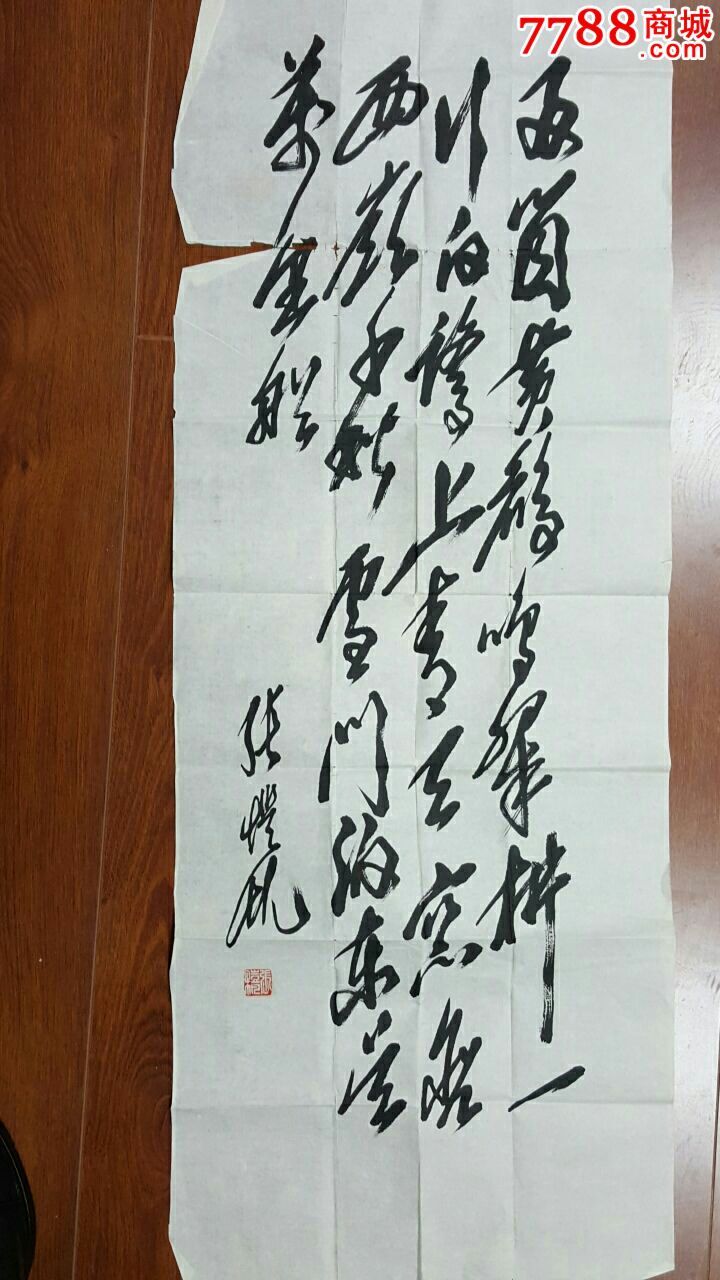 7788商城
.com
两箇黄鹂鸣翠柳一
行白鹭上青天窗含
西嶺千秋雪门泊东吴
萬里船
张愷帆